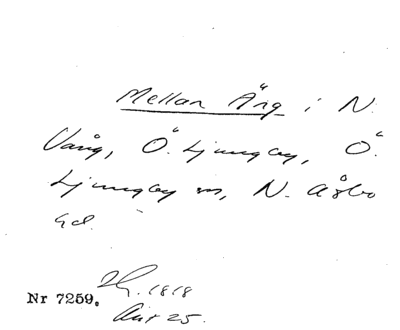 Mellan Äng i N.
Vång, Ö. Ljungby, Ö.
Ljungby sn, N. Åsbo
hd.
1818
Nr 7259.
Akt 25.